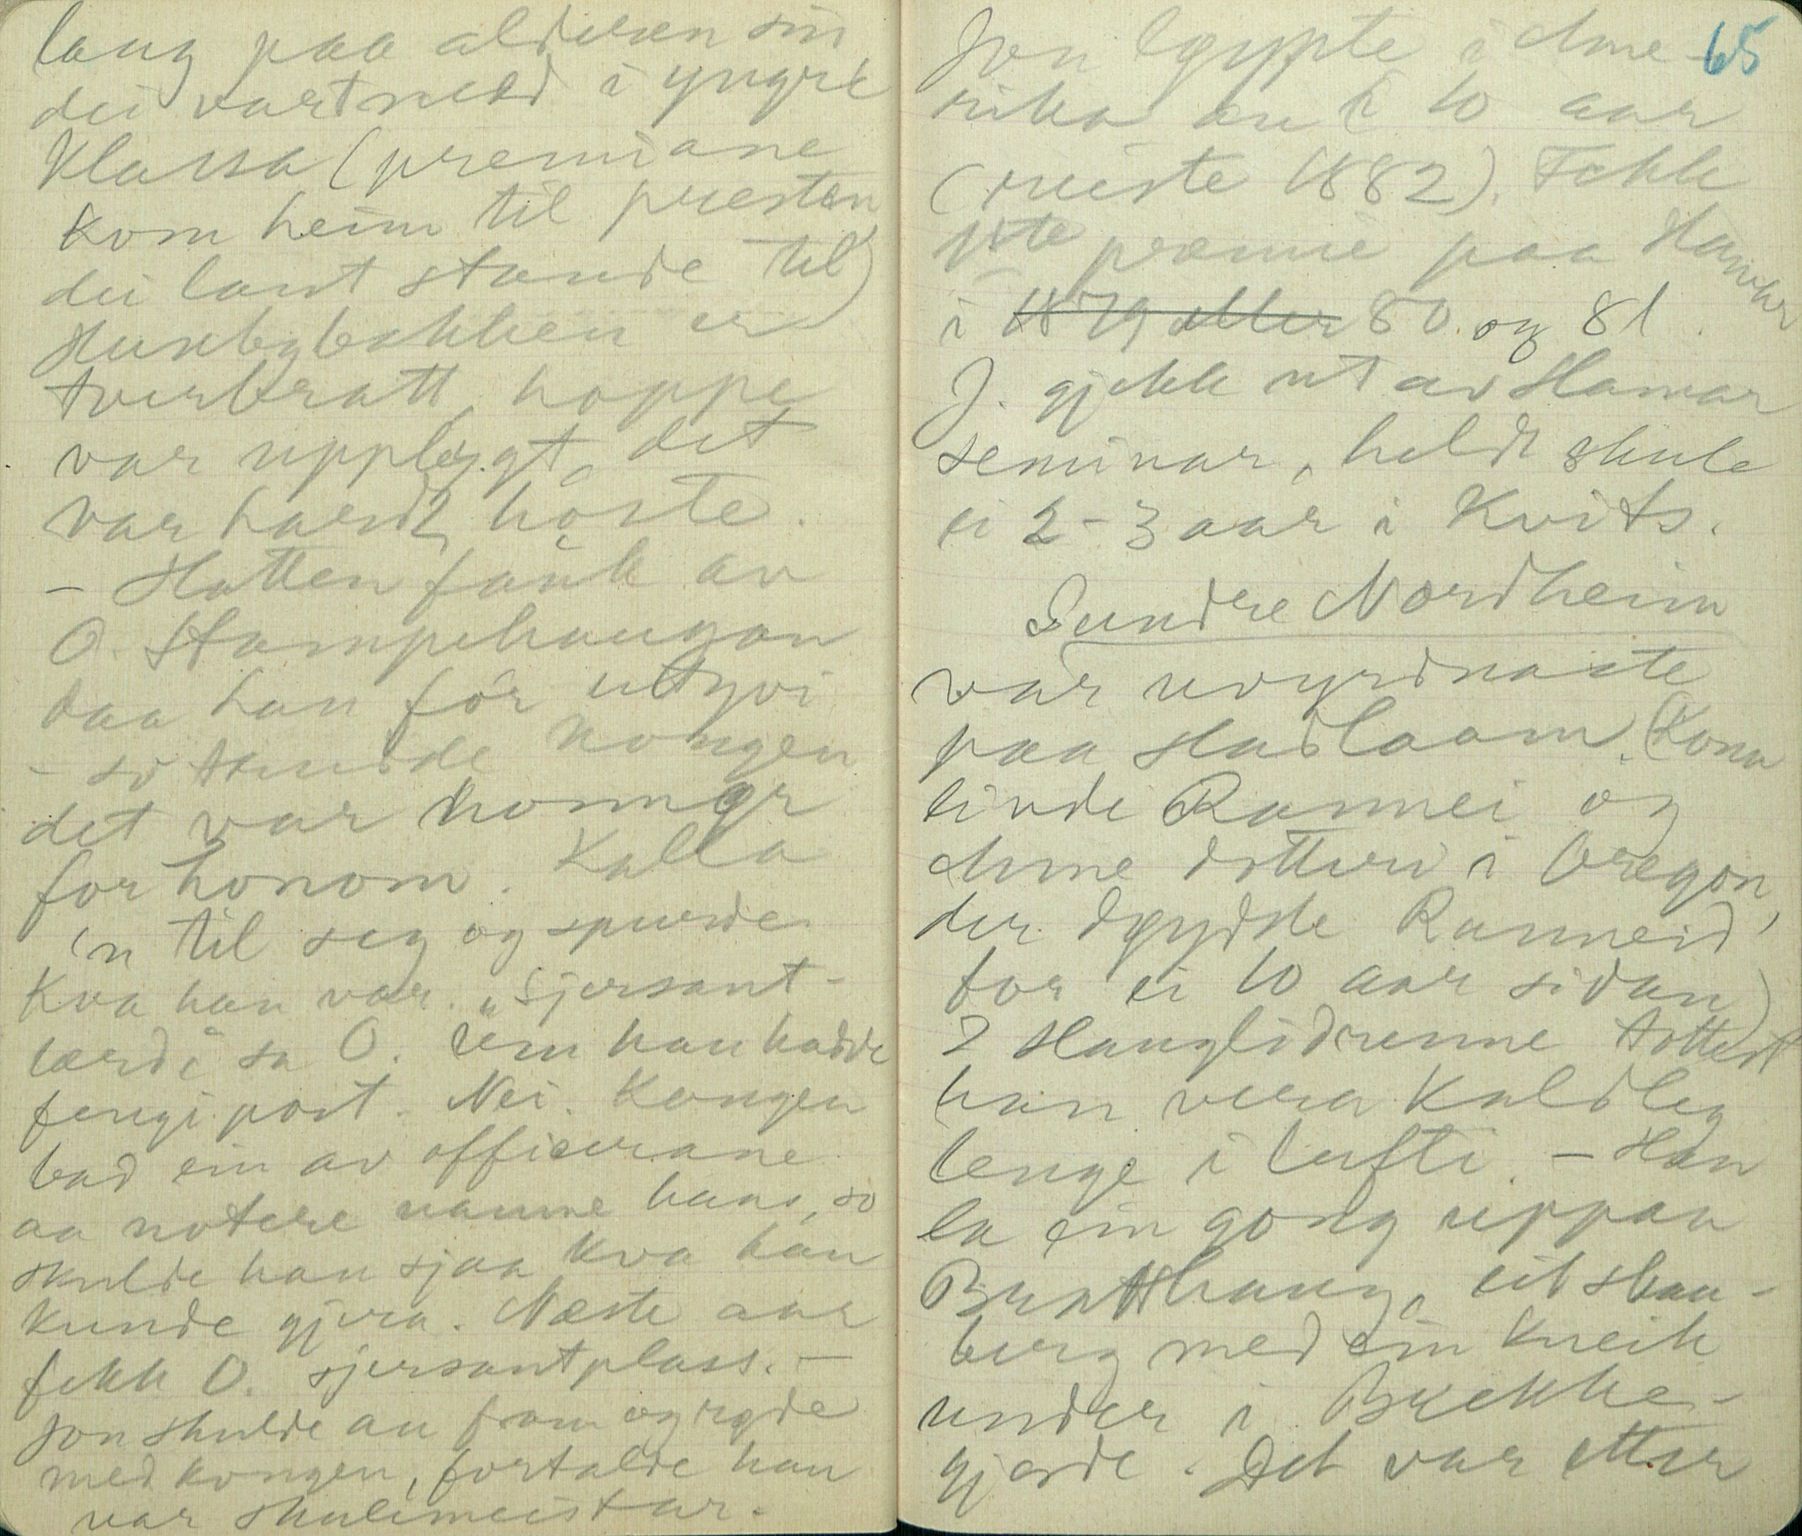 lang paa alderen sin
dei vart med i yngre
Klassa (premiane
kom heim til presten,
dei laut stande til)
Huxbybakken er
tverbratt, hoppe
var upplagt, det
var hardt, høste.
– Hatten fauk av
O. Stampehaugan
daa han før utyvi
– so trudde kongen
det var honnør
for honom. Kalla
'n til seg og spurde
Kva han var. "Sjersant-
lærd" sa O. um han hadde
fengi post. Nei. Kongen
bad ein av officerane
aa notere namne hans, so
skulde han sjaa kva han
kunde gjera. Næste aar
fekk O. sjersantplass. –
Jon skulde au fram og røde
med kongen, fortalde han
var skulemeistar.
65
Jon Egypte i Ame-
rika au i 10 aar
(reiste 1882). Fekk
1ste premie paa Hamar
i 1879 eller 80 og 81.
J. gjekk ut av Hamar
seminar, heldt skule
ei 2-3 aar i Kvits.
Sundre Nordheim
var uvyrdnaste
paa Hadlaam. (Kona
livde Rannei og
Anne dotteri i Oregon,
der døydde Ranneid
for ei 10 aar sidan)
I Hauglidrenne tottest
han vera Kaldleg
lenge i lufti. – Han
la ein gong uppaa
Bratthaug, eit skaa-
berg med ein Kneik
under i Brekke-
gjerde. Det var etter